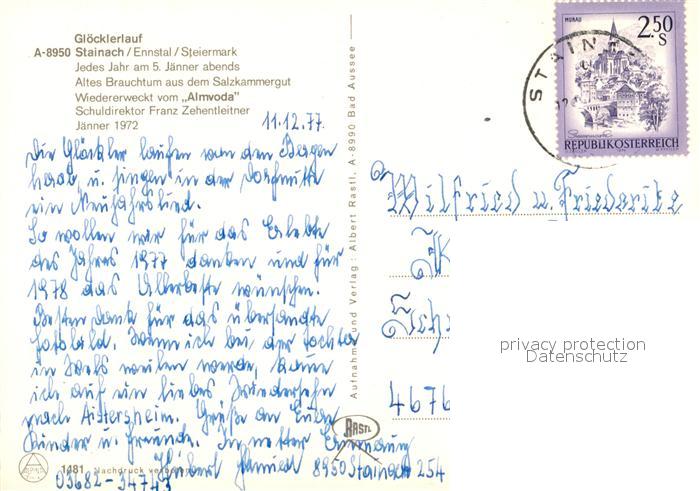 Glöcklerlauf
A-8950 Stainach / Ennstal / Steiermark
Jedes Jahr am 5. Jänner abends
Altes Brauchtum aus dem Salzkammergut
Wiedererweckt vom „Almvoda"
Schuldirektor Franz Zehentleitner
Jänner 1972
11.12.77.
Die Glöckler laufen von den Bergen
herab u. singen in der Dorfmitte
ein Neujahrslied.
So wollen wir für das Erlebte
des Jahres 1977 danken und für
1978 das Allerbeste wünschen.
Besten Dank für das übersandte
Fotobild. Wenn ich bei der Tochter
in Wels weilen werde, komme
ich auf ein liebes Wiedersehn
nach Aistersheim. Grüße an Eure
Kinder u. Freunde. In netter Erinnerung
8950 Stainach 254
03682-34743
1481 Nachdruck verboten
RASTL
Aufnahme und Verlag: Albert Rastl, A-8990 Bad Aussee
MURAU
2.50
S
REPUBLIK ÖSTERREICH
STAIN
Wilfried u. Friederike
4676
privacy protection
Datenschutz